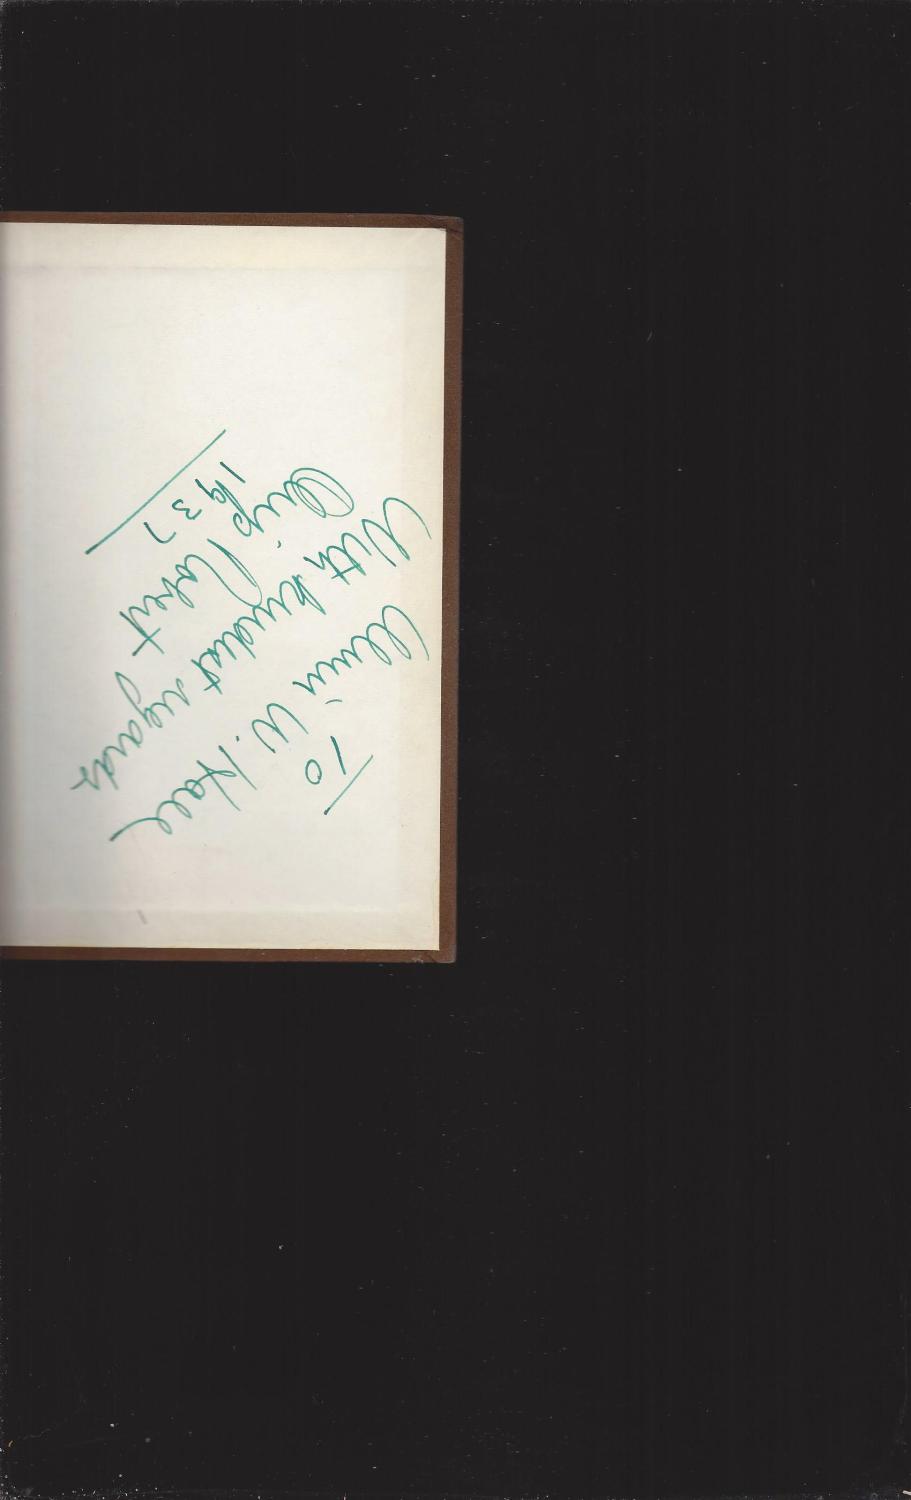 To
Alvin W. Hall
With kindest regards
Chip Robert
1937